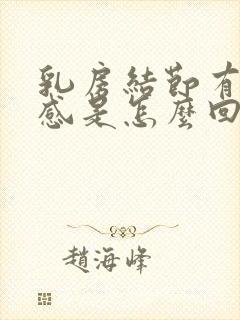 乳房結節有
感是怎麼回
趙海峰